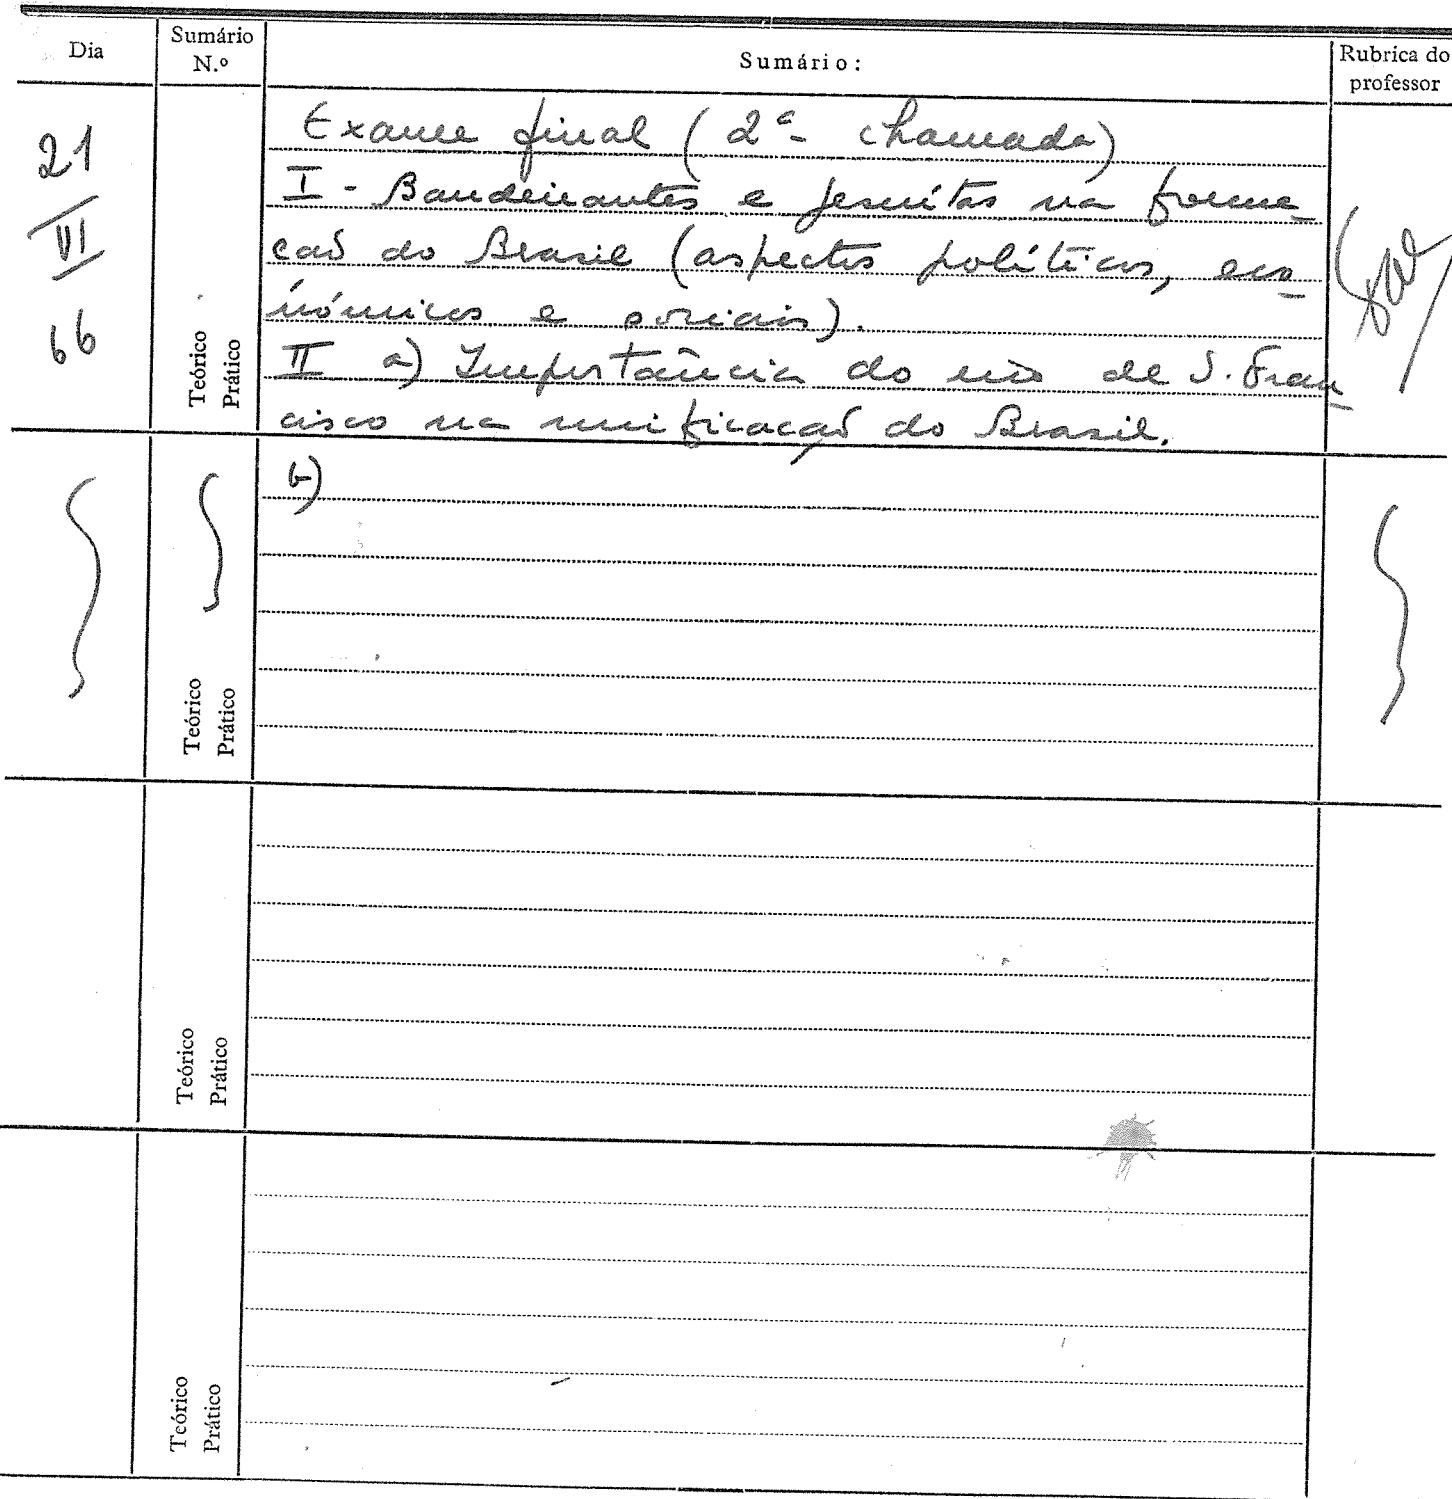 Dia
Sumário N.º
Sumário:
Rubrica do professor
21
VI
66
Teórico
Prático
Exame final (2ª chamada)
I - Bandeirantes e jesuítas na forma_
ção do Brasil (aspectos políticos, eco_
nómicos e sociais).
II a) Importância do rio de S. Fran_
cisco na unificação do Brasil.
b)
Teórico
Prático
Teórico
Prático
Teórico
Prático